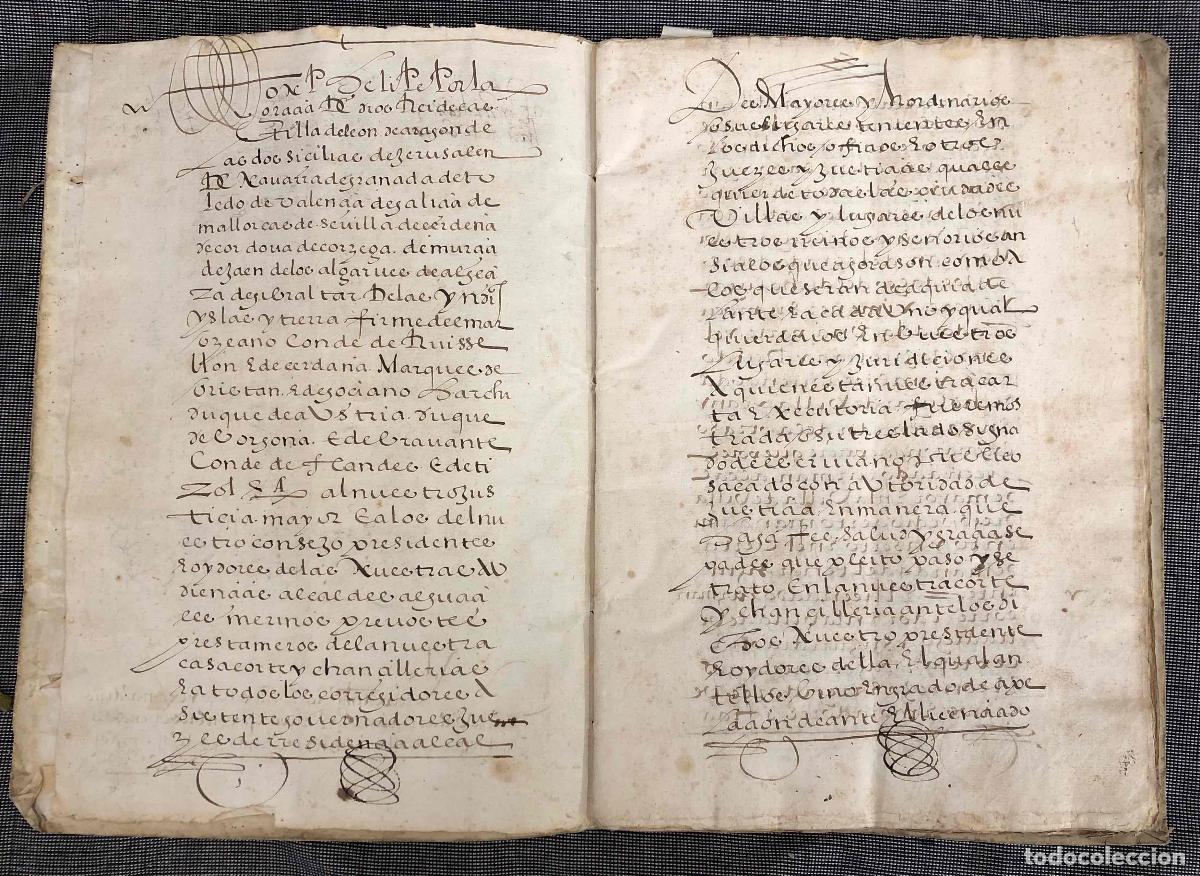 Don Phelipe Por la
gracia de dios Rei de cas
tilla de leon de aragon de
Las dos sicilias de Jerusalen
de Navarra de granada de to
ledo de valencia de galicia de
mallorcas de sevilla de cerdeña
de cordova de corzega. de murcia
de jaen de los algarves de algeci
za de gibraltar De las Yndias
yslas y tierra firme del mar
ozeano Conde de Ruise
llon E de cerdania Marques de
oristan E de gociano Earchi
duque de aUstria. duque
de borgoña. E de bravante
Conde de flandes E de ti
rol Ea al nuestro jus
ticia. mayor E a los del nu
estro consejo presidentes
E oydores de las Nuestras Au
diencias alcaldes alguaci
les merinos prevostes
prestameros de la nuestra
casa corte y chancillerias
E a todos los corregidores A
sistentes governadores jue
zes de residencia alcal
des Mayores y hordinarios
o sus lugares tenientes En
los dichos offiçios E otros
Juezes y Justicias quales
quier de todas las çiudades
Villas y lugares de los nu
estros reinos y señorios an
si a los que agora son como A
los que seran de aqui ade
lante E a cada Uno y qual
quier de vos En buestros
Lugares y juridiciones
A quien esta nuestra car
ta Executoria fuere mos
trada o su treslado signa
do de escrivano publico
sacado con aUtoridad de
justicia En manera que
haga fee. salud y graçia se
pades que pleito paso y se
trato En la nuestra corte
y chancilleria ante los di
chos Nuestro presidente
E oydores de lla El qual an
te llos bino En grado de ape
laçion de ante El licenciado
todocoleccion